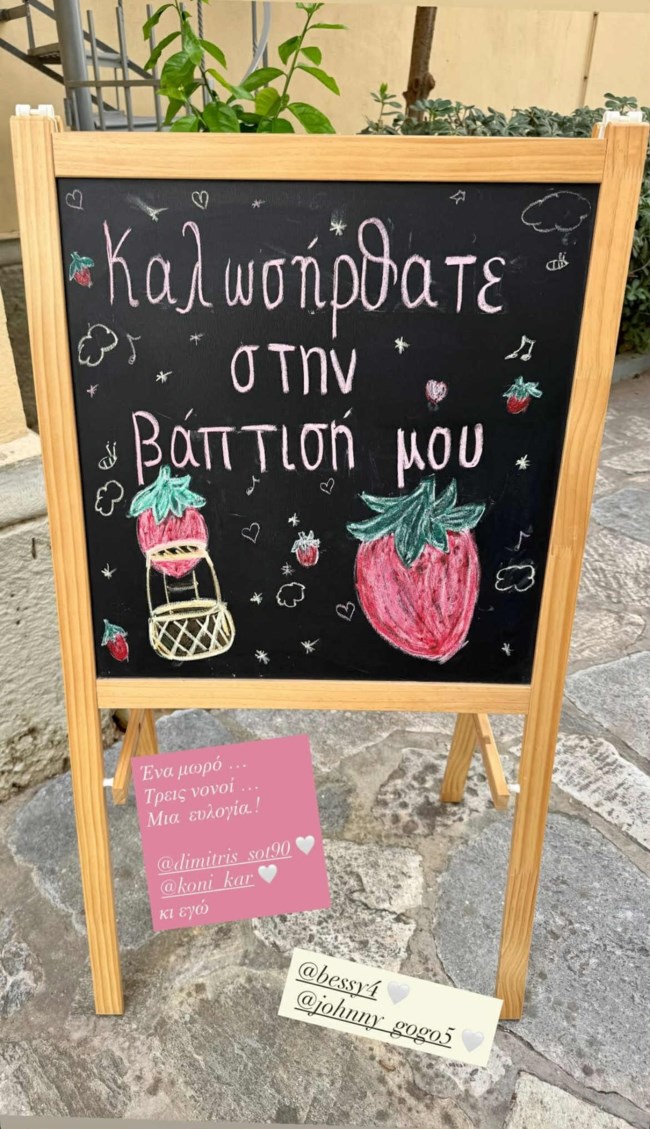 Καλωσήρθατε
στην
βάπτισή μου
Ένα μωρό ...
Τρεις νονοί ...
Μια ευλογία.!
@dimitris_sot90 🤍
@koni_kar 🤍
κι εγώ
@bessy4 🤍
@johnny_gogo5 🤍